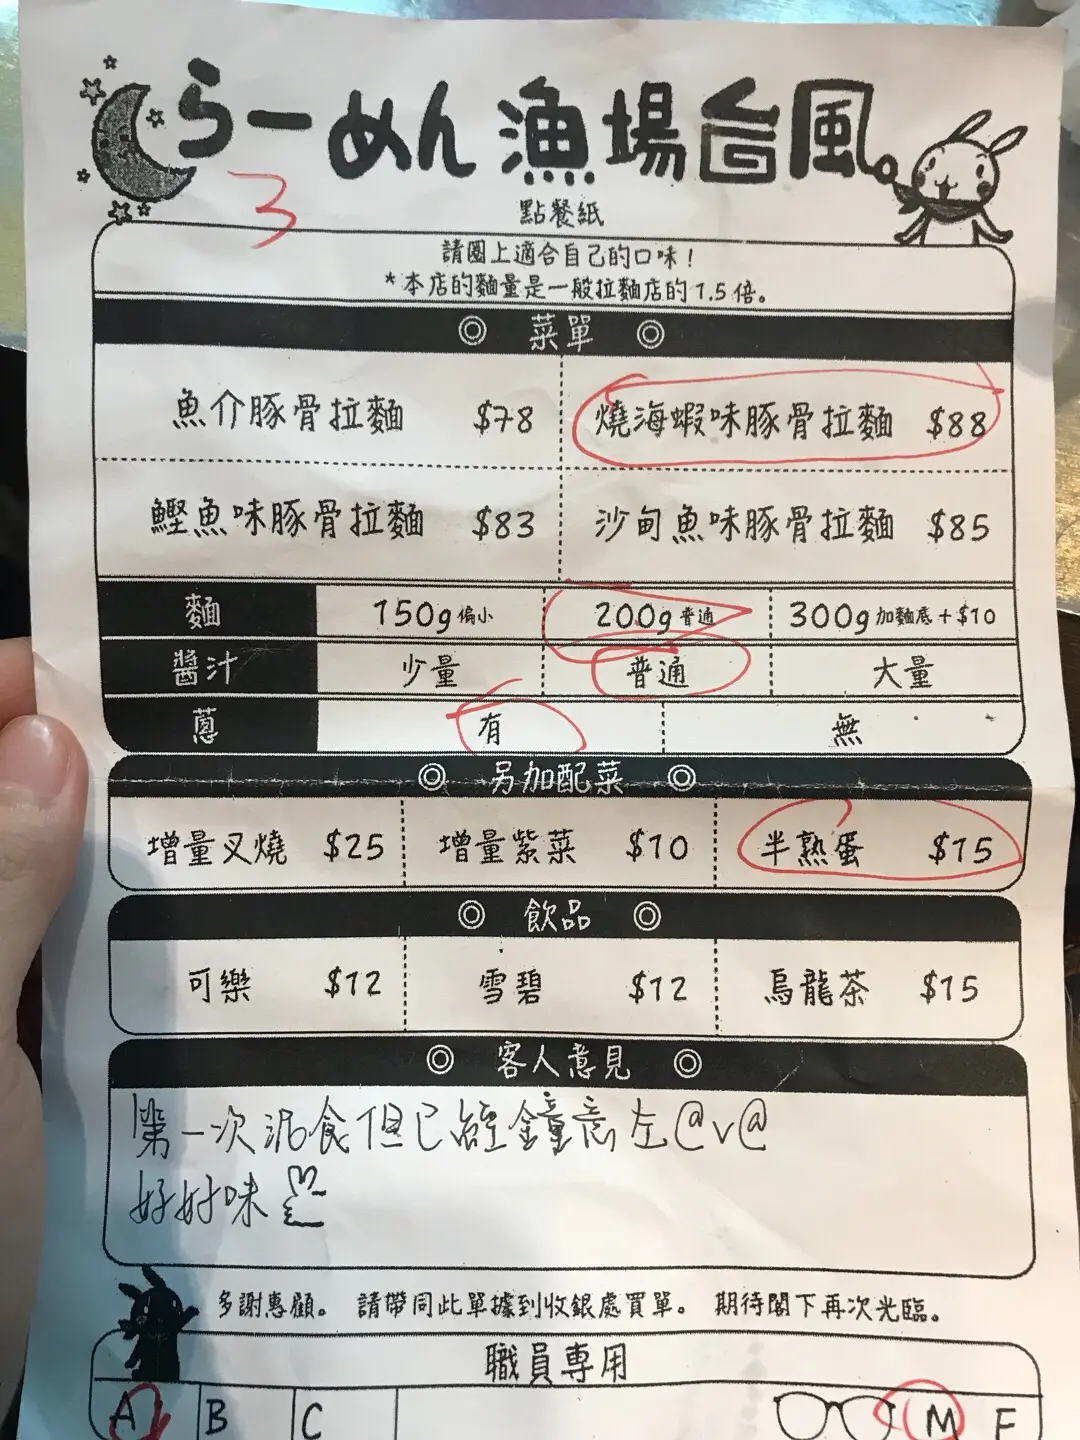 らーめん 漁場台風。
3
點餐紙
請圈上適合自己的口味！
*本店的麵量是一般拉麵店的1.5倍。
◎ 菜單 ◎
魚介豚骨拉麵 $78
燒海蝦味豚骨拉麵 $88
鰹魚味豚骨拉麵 $83
沙甸魚味豚骨拉麵 $85
麵 150g偏小 200g普通 300g加麵底+$10
醬汁 少量 普通 大量
蔥 有 無
◎ 另加配菜 ◎
增量叉燒 $25 增量紫菜 $10 半熟蛋 $15
◎ 飲品 ◎
可樂 $12 雪碧 $12 烏龍茶 $15
◎ 客人意見 ◎
第一次泥食但已經鐘意左@v@
好好味
多謝惠顧。 請帶同此單據到收銀處買單。 期待閣下再次光臨。
職員專用
A B C M F